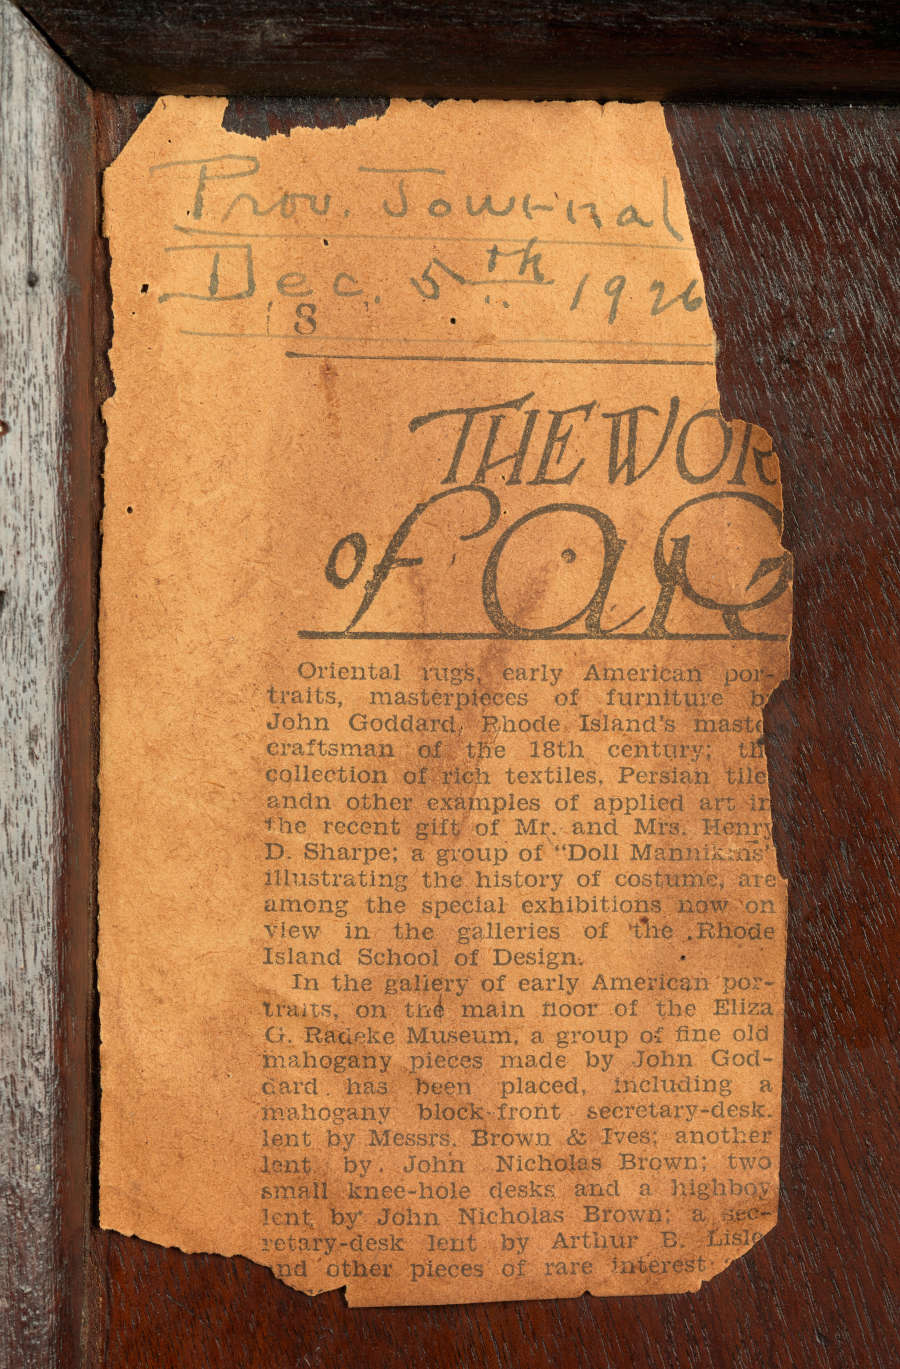 Prov. Journal
Dec. 5th 1926
8
THE WOR
of AR
Oriental rugs, early American por-
traits, masterpieces of furniture b
John Goddard, Rhode Island's maste
craftsman of the 18th century; th
collection of rich textiles, Persian tile
andn other examples of applied art in
the recent gift of Mr. and Mrs. Henry
D. Sharpe; a group of "Doll Mannikins"
illustrating the history of costume, are
among the special exhibitions now on
view in the galleries of the Rhode
Island School of Design.
In the gallery of early American por-
traits, on the main floor of the Eliza
G. Radeke Museum, a group of fine old
mahogany pieces made by John God-
dard has been placed, including a
mahogany block-front secretary-desk,
lent by Messrs. Brown & Ives; another
lent by John Nicholas Brown; two
small knee-hole desks and a highboy
lent by John Nicholas Brown; a sec-
retary-desk lent by Arthur B. Lisle
and other pieces of rare interest